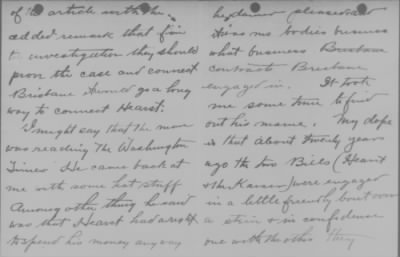 of the article with the
added remark that from
investigation they should
prove the case and connect
Brisbane it would go a long
way to connect Hearst.
I might say that the man
was reading the Washington
Times. He came back at
me with some hot stuff
Among other thing he said
was that Hearst had a right
to spend his money any way
he pleased and
it was no bodies business
what business Brisbane
contracts Brisbane
engaged in. It took
me some time to find
out his name. My dope
is that about twenty years
ago the two Bills (Hearst
& the Kaiser) were engaged
in a little friendly bout over
a stein & in confidence
one with the other they